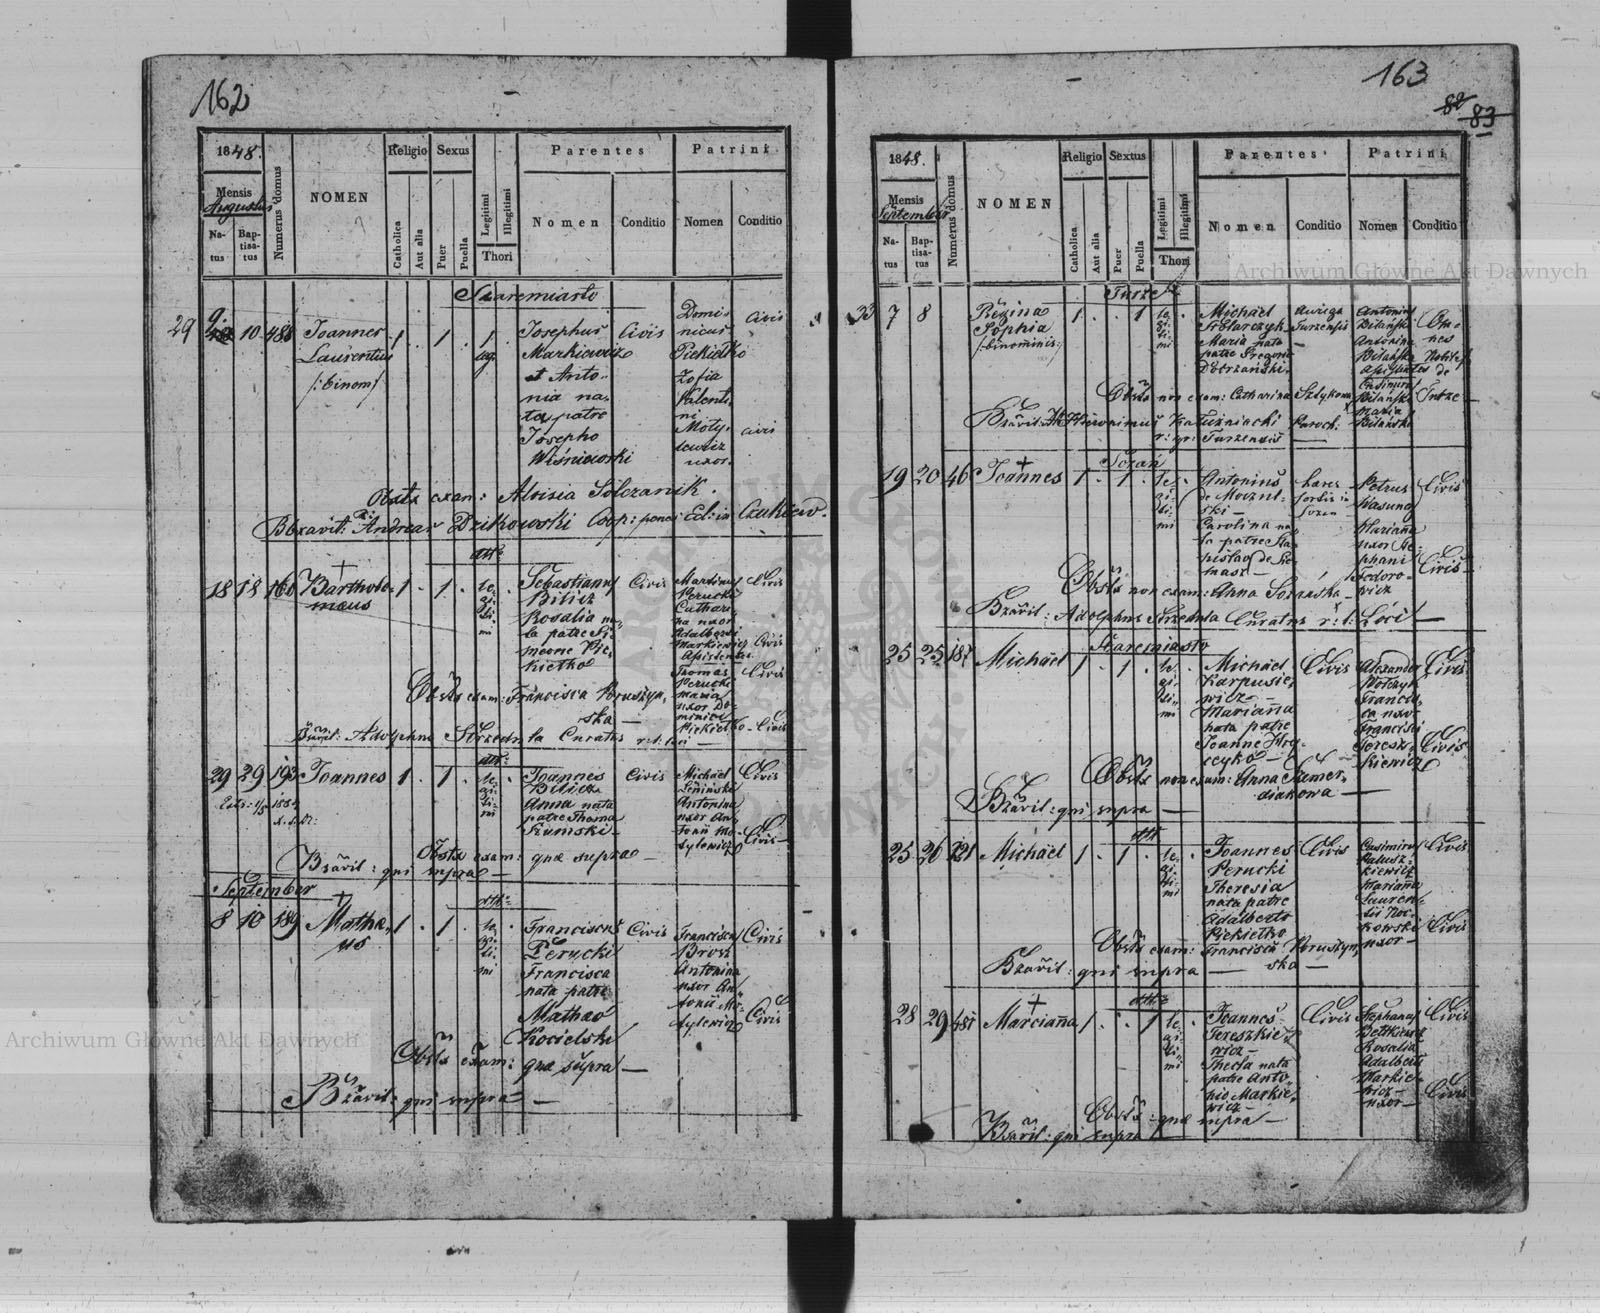 162
1848.
Mensis
Augustus
Natus
Baptisatus
Numerus domus
NOMEN
Religio
Catholica
Aut alia
Sexus
Puer
Puella
Legitimi
Illegitimi
Thori
Parentes
Nomen
Conditio
Patrini
Nomen
Conditio
Staremiasto
29
9. 10 488 Joannes
Laurentius
/:binom:/
1 1 1
Josephus
Markiewicz
et Anto-
nia na-
ta patre
Josepho
Wiśniowski
Civis
Domi-
nicus
Piekiełko
Zofia
Valenti-
ni
Moty-
lewicz
uxor.
Civis
Civis
Obstx exam: Aloisia Solczanik.
Bzavit: Andreas Dzikowski Coop:
dtto
18 18 160 Bartholo-
maeus
1 . 1 . le-
gi-
ti-
mi
Sebastianus
Bilicz
Rosalia na-
ta patre Si-
meone Pie-
kiełko
Civis
Martinus
Perucki
Cathari-
na uxor
Adalberti
Markiewicz
Assistentes
Thomas
Perucki
Maria
uxor Do-
minici
Piekiełko
Civis
Civis
Civis
Civis
Obstx exam: Francisca Pruszyn-
ska
Bzavit: Adolphus Strzednta Curatus r. l. loci
dtto
29 29 193 Joannes 1 . 1 . le-
gi-
ti-
mi
Joannes
Bilicz
Anna nata
patre Thoma
Szumski
Civis
Michael
Leninski
Antonina
uxor An-
tonii Mo-
tylewicz
Civis
Civis
Obstx exam: quae supra
Bzavit: qui supra
September
dtto
8 10 189 Mathae-
us
1 . 1 . le-
gi-
ti-
mi
Franciscus
Perucki
Francisca
nata patre
Mathaeo
Kocielski
Civis
Franciscus
Brosz
Antonina
uxor An-
tonii Mo-
tylewicz
Civis
Civis
Obstx exam: quae supra
Bzavit: qui supra
163
82
83
1848.
Mensis
September
Natus
Baptisatus
Numerus domus
NOMEN
Religio
Catholica
Aut alia
Sextus
Puer
Puella
Legitimi
Illegitimi
Thori
Parentes
Nomen
Conditio
Patrini
Nomen
Conditio
Turze
33 7 8 Regina
Sophia
/:binominis:/
1 . . 1 le-
gi-
ti-
mi
Michael
Stolarczyk
Maria nata
patre Gregorio
Dobrzański
Auriga
Turzensis
Antonius
Bilański
Antonina
Bilańska
Assistentes
Casimirus
Bilański
Maria
Bilańska
Om-
nes
Nobiles
de
Turze
Obstx non exam: Catharina Sztykowa
Bzavit: Hieronimus Kałużniacki Paroch:
r: gr: Turzensis
Sozań
19 20 46 Joannes 1 . 1 . le-
gi-
ti-
mi
Antonius
Carolina na-
ta patre Sta-
nislao
Petrus
Wasung
Marianna
uxor Ste-
phani
Fedoro-
wicz
Civis
Civis
Obstx non exam: Anna Sozańska
Bzavit: Adolphus Strzednta Curatus r: l: Loci
Staremiasto
25 25 187 Michael 1 . 1 . le-
gi-
ti-
mi
Michael
Karpusie-
wicz
Marianna
nata patre
Joanne Hry-
cyko
Civis
Alexander
Wołczyk
Francis-
ca uxor
Francisci
Teresz-
kiewicz
Civis
Civis
Obstx non exam: Anna Semer-
diakowa
Bzavit: qui supra
dtt
25 26 121 Michael 1 . 1 . le-
gi-
ti-
mi
Joannes
Perucki
Theresia
nata patre
Adalberto
Piekiełko
Civis
Casimirus
Patusz-
kiewicz
Marianna
Lauren-
tii Koc-
kowski
uxor
Civis
Civis
Obstx exam: Francisca Pruszyn-
ska
Bzavit: qui supra
dtto
28 29 487 Marcianna 1 . . 1 le-
gi-
ti-
mi
Joannes
Tereszkie-
wicz
Thecla nata
patre Anto-
nio Markie-
wicz
Civis
Stephanus
Betkiewicz
Rosalia
Adalberti
Markie-
wicz
uxor
Civis
Civis
Obstx: quae supra
Bzavit: qui supra
Archiwum Główne Akt Dawnych
Archiwum Główne Akt Dawnych